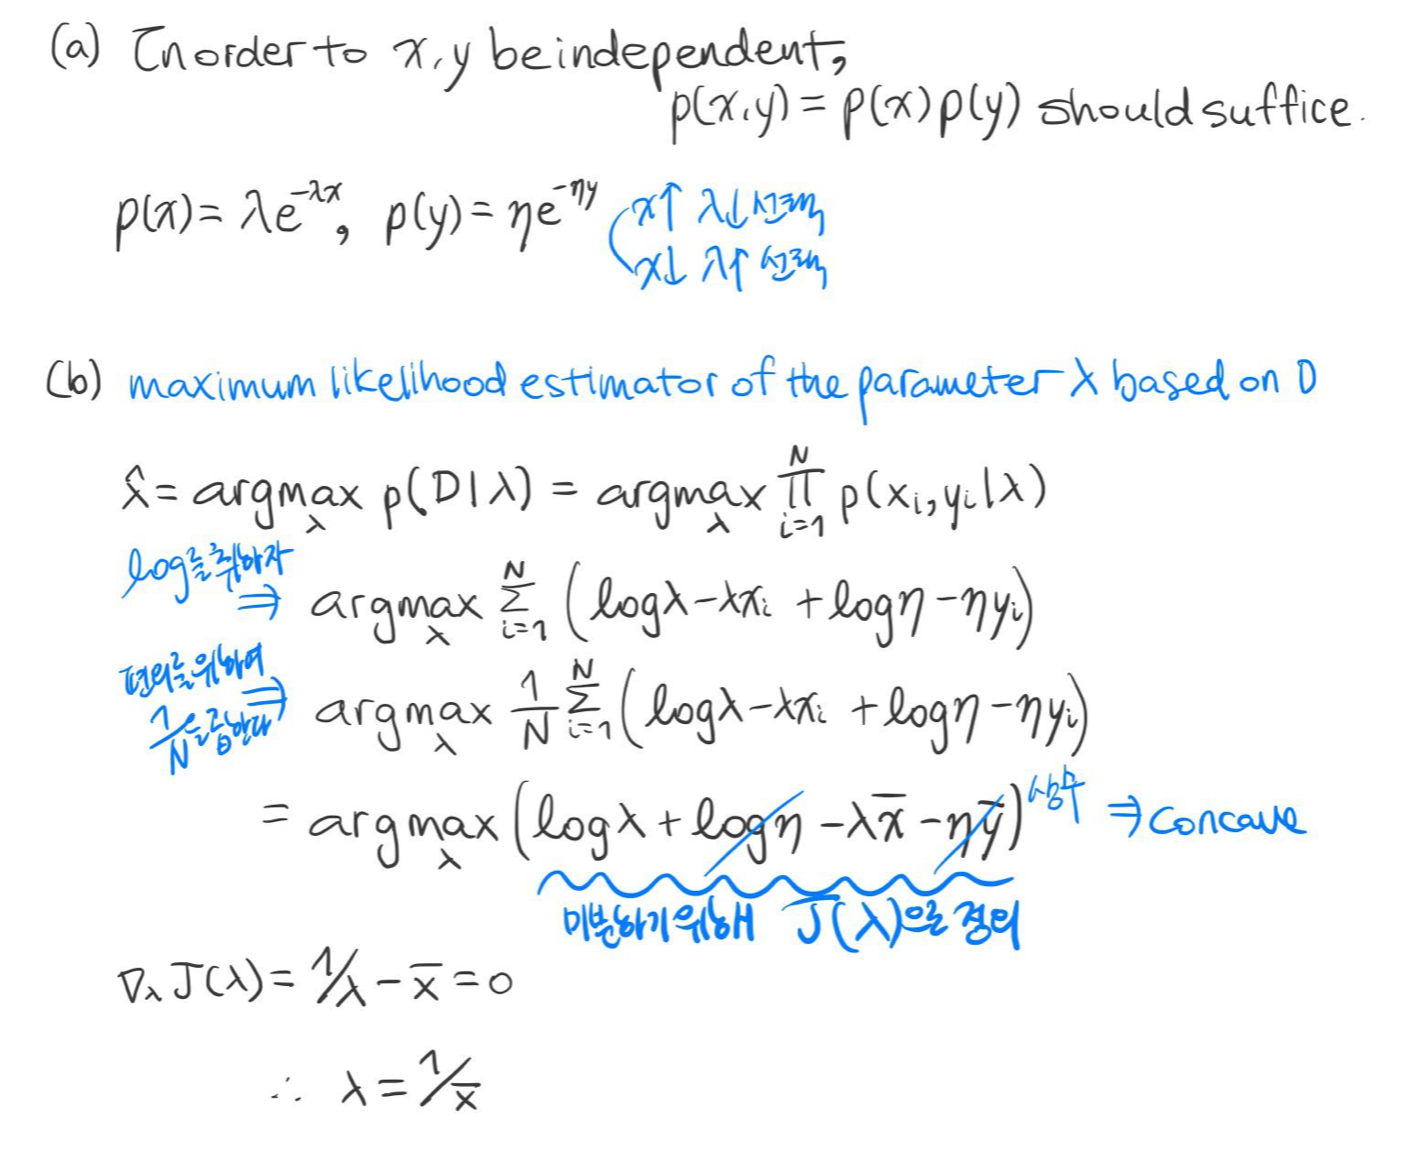 (a) In order to x, y be independent,
p(x,y) = p(x)p(y) should suffice.
p(x) = λe^{-λx}, p(y) = ηe^{-ηy}
x↑ λ↓ 선택
x↓ λ↑ 선택
(b) maximum likelihood estimator of the parameter λ based on D
λ̂ = argmax_λ p(D|λ) = argmax_λ ∏_{i=1}^{N} p(x_i, y_i|λ)
log를 취하자
⇒ argmax_λ Σ_{i=1}^{N} (logλ - λx_i + logη - ηy_i)
편의를 위하여
1/N을 곱한다
⇒ argmax_λ 1/N Σ_{i=1}^{N} (logλ - λx_i + logη - ηy_i)
= argmax_λ (logλ + logη - λx̄ - ηȳ) 상수 ⇒ concave
미분하기 위해 J(λ)으로 정의
∇_λ J(λ) = 1/λ - x̄ = 0
∴ λ = 1/x̄